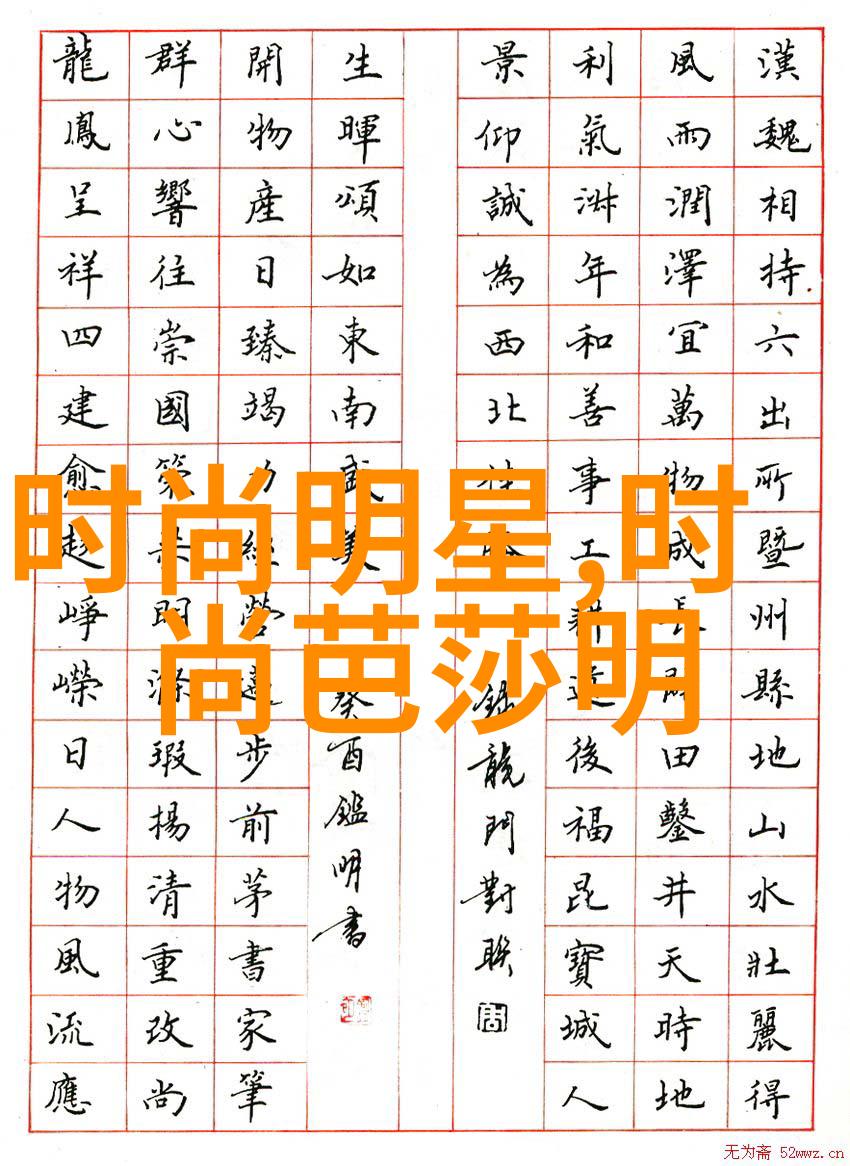 漢魏相持六出所暨州縣地山水壯麗得
風雨潤澤宜萬物成長田鑿井天時地
利氣淋年和善事工耕後福昆寶城人
景仰誠為西北
錄龍門對聯
生暉頌如東南盛美
癸酉鑑明書
開物產日臻竭力經營步前茅書家筆
群心響往崇國策明滌瑕揚清重改尚
龍鳳呈祥四建愈趋崢嶸日人物風流應
时尚明星,时
尚芭莎明
无为斋 52wwz.cn